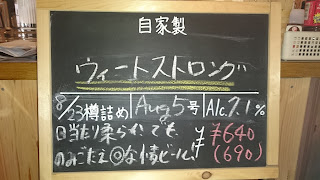 自家製
ウィートストロング
8/23樽詰め Aug5号 Alc.7.1%
口当たり柔らか でも、 ¥640
のみごたえ◎な情ビール! (690)